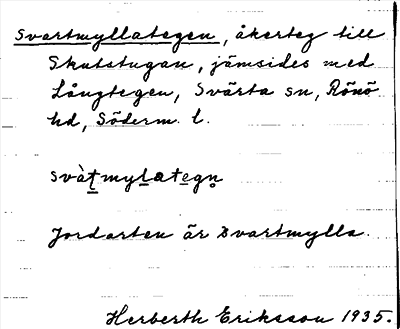 Svartmyllategen, åkerteg till
Skutstugan, jämsides med
Långtegen, Svärta sn, Rönö
hd, Söderm. l.
svàt̠myl̠ategn̥
Jordarten är svartmylla.
Herberth Eriksson 1935.